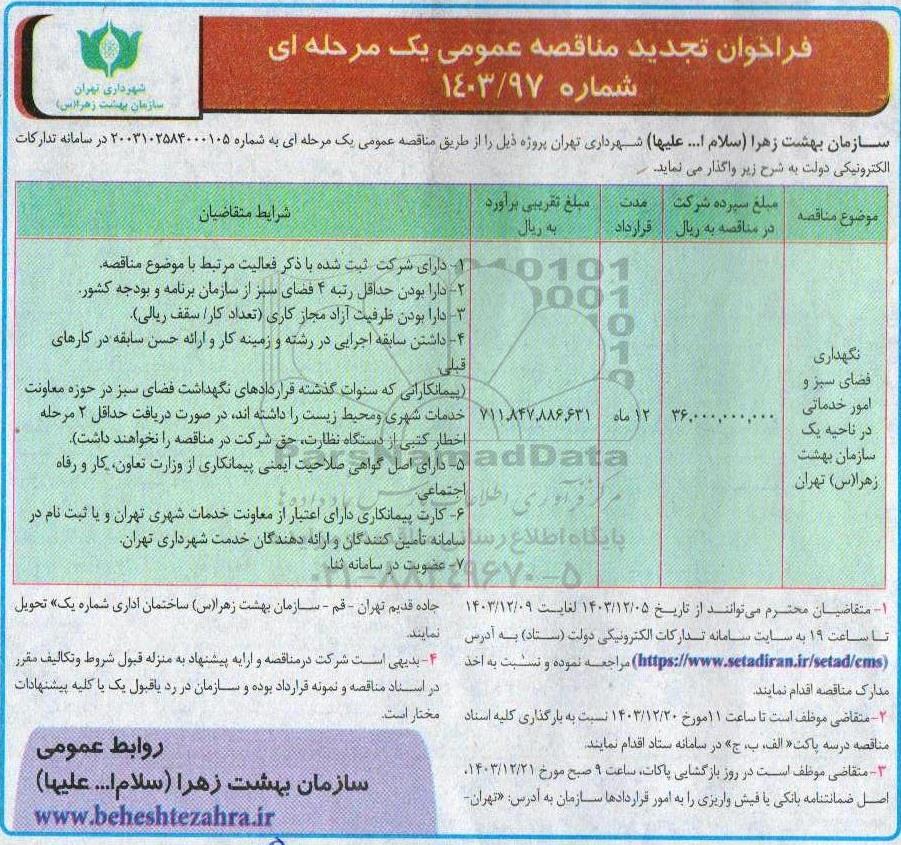 فراخوان تجدید مناقصه عمومی یک مرحله ای
شماره ۱۴۰۳/۹۷
شهرداری تهران
سازمان بهشت زهرا(س)
سازمان بهشت زهرا (سلام ا... علیها) شهرداری تهران پروژه ذیل را از طریق مناقصه عمومی یک مرحله ای به شماره ۲۰۰۳۱۰۲۵۸۴۰۰۰۱۰۵ در سامانه تدارکات
الکترونیکی دولت به شرح زیر واگذار می نماید.
موضوع مناقصه
مبلغ سپرده شرکت
در مناقصه به ریال
مدت
قرارداد
مبلغ تقریبی برآورد
به ریال
شرایط متقاضیان
نگهداری
فضای سبز و
امور خدماتی
در ناحیه یک
سازمان بهشت
زهرا(س) تهران
۳۶,۰۰۰,۰۰۰,۰۰۰
۱۲ ماه
۷۱۱,۸۴۷,۸۸۶,۶۳۱
۱- دارای شرکت ثبت شده با ذکر فعالیت مرتبط با موضوع مناقصه.
۲- دارا بودن حداقل رتبه ۴ فضای سبز از سازمان برنامه و بودجه کشور.
۳- دارا بودن ظرفیت آزاد مجاز کاری (تعداد کار/ سقف ریالی).
۴- داشتن سابقه اجرایی در رشته و زمینه کار و ارائه حسن سابقه در کارهای
قبلی.
(پیمانکارانی که سنوات گذشته قراردادهای نگهداشت فضای سبز در حوزه معاونت
خدمات شهری ومحیط زیست را داشته اند، در صورت دریافت حداقل ۲ مرحله
اخطار کتبی از دستگاه نظارت، حق شرکت در مناقصه را نخواهند داشت).
۵- دارای اصل گواهی صلاحیت ایمنی پیمانکاری از وزارت تعاون، کار و رفاه
اجتماعی.
۶- کارت پیمانکاری دارای اعتبار از معاونت خدمات شهری تهران و یا ثبت نام در
سامانه تأمین کنندگان و ارائه دهندگان خدمت شهرداری تهران.
۷- عضویت در سامانه ثنا.
ParsNamadData
پایگاه اطلاع رسانی
۰۲۱-۸۸۳۴۹۶۷۰-۵
۱- متقاضیان محترم می‌توانند از تاریخ ۱۴۰۳/۱۲/۰۵ لغایت ۱۴۰۳/۱۲/۰۹
تا ساعت ۱۹ به سایت سامانه تدارکات الکترونیکی دولت (ستاد) به آدرس
(https://www.setadiran.ir/setad/cms) مراجعه نموده و نسبت به اخذ
مدارک مناقصه اقدام نمایند.
۲- متقاضی موظف است تا ساعت ۱۱مورخ ۱۴۰۳/۱۲/۲۰ نسبت به بارگذاری کلیه اسناد
مناقصه درسه پاکت« الف، ب، ج» در سامانه ستاد اقدام نمایند.
۳- متقاضی موظف است در روز بازگشایی پاکات، ساعت ۹ صبح مورخ ۱۴۰۳/۱۲/۲۱،
اصل ضمانتنامه بانکی یا فیش واریزی را به امور قراردادها سازمان به آدرس: «تهران-
جاده قدیم تهران - قم - سازمان بهشت زهرا(س) ساختمان اداری شماره یک» تحویل
نمایند.
۴- بدیهی است شرکت درمناقصه و ارایه پیشنهاد به منزله قبول شروط وتکالیف مقرر
در اسناد مناقصه و نمونه قرارداد بوده و سازمان در رد یاقبول یک یا کلیه پیشنهادات
مختار است.
روابط عمومی
سازمان بهشت زهرا (سلام‌ا... علیها)
www.beheshtezahra.ir